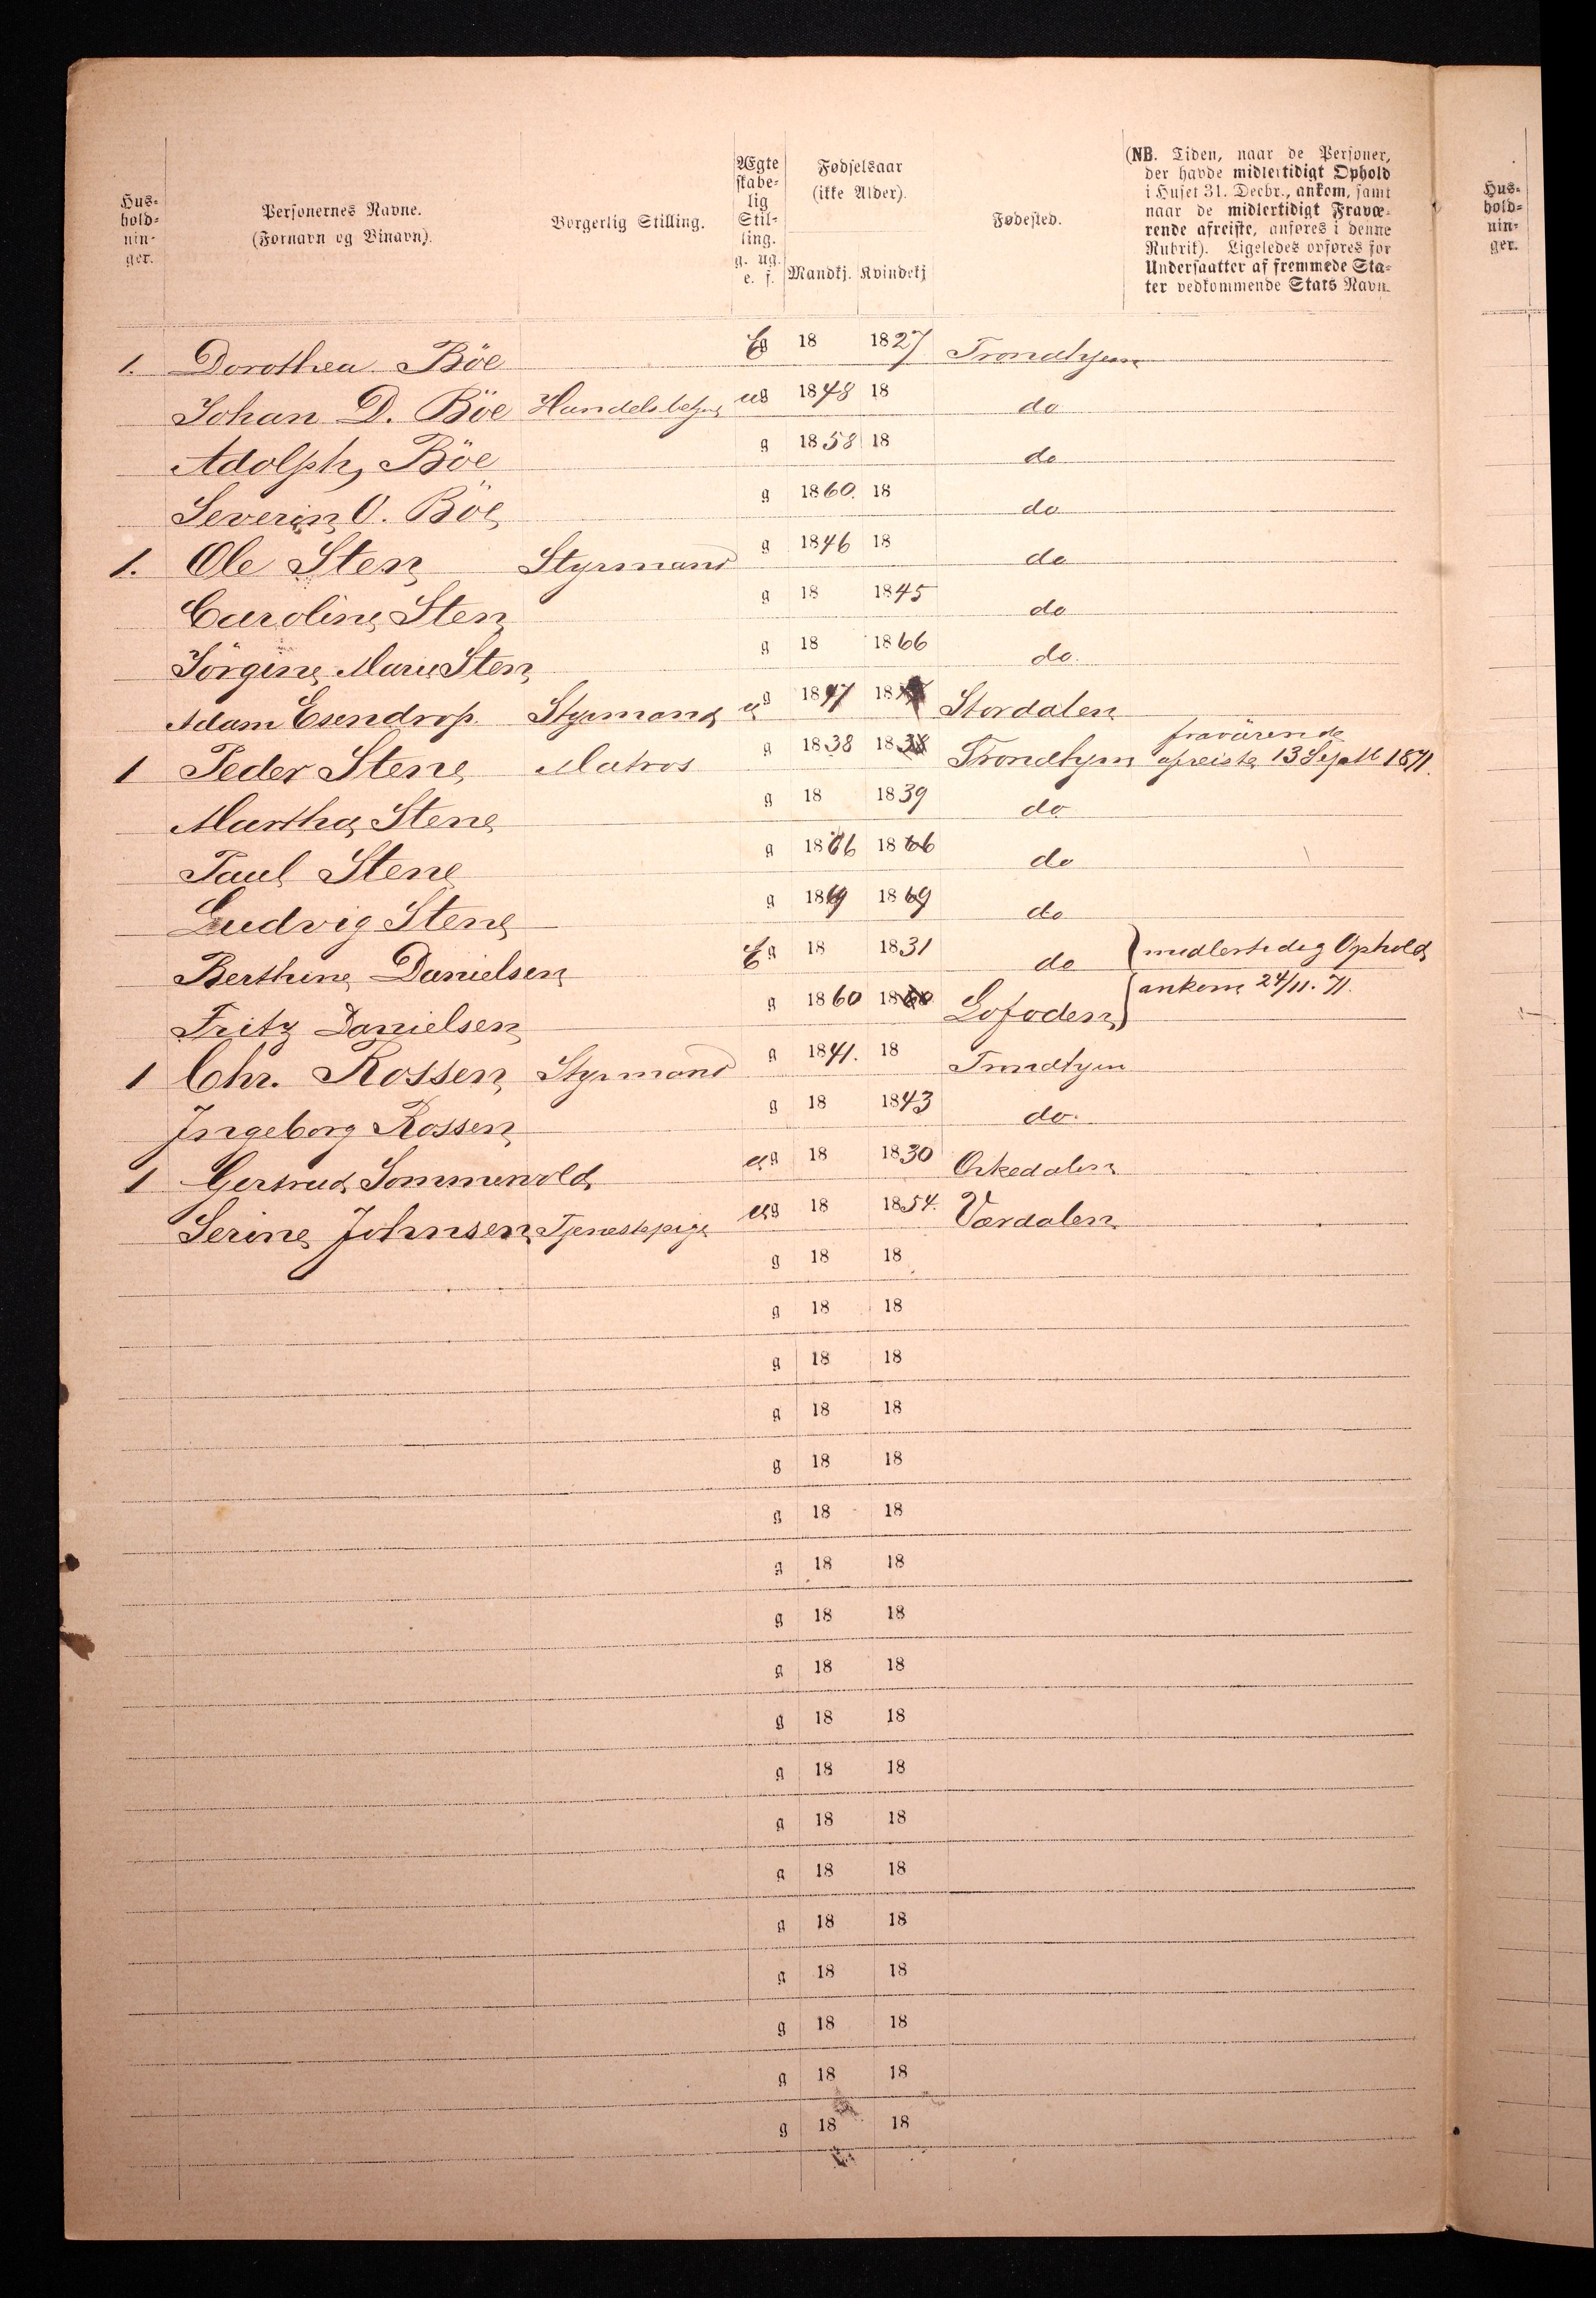 Hus-
hold-
nin-
ger.
Personernes Navne.
(Fornavn og Binavn).
Borgerlig Stilling.
Ægte
skabe-
lig
Stil-
ling.
g. ug.
e. f.
Fødselsaar
(ikke Alder).
Mandkj. Kvindekj
Fødested.
(NB. Tiden, naar de Personer,
der havde midlertidigt Ophold
i Huset 31. Decbr., ankom, samt
naar de midlertidigt Fravæ-
rende afreiste, anføres i denne
Rubrik). Ligeledes opføres for
Undersaatter af fremmede Sta-
ter vedkommende Stats Navn.
Hus-
hold-
nin-
ger.
1. Dorothea Böe E g 18 1827 Trondhjem
Johan D. Böe Handelsbetj ug 1848 18 do
Adolph Böe g 1858 18 do
Severin O. Böe g 1860. 18 do
1. Ole Sten Styrmand g 1846 18 do
Caroline Sten g 18 1845 do
Jörgine Marie Sten g 18 1866 do.
Adam Esendrop Styrmand ug 1847 18 Stordalen
fraværende
1 Peder Stene Matros g 1838 1838 Trondhjem afreiste 13 Septb 1871.
Martha Stene g 18 1839 do
Paul Stene g 1866 1866 do
Ludvig Stene g 1869 1869 do
Berthine Danielsen E g 18 1831 do midlertidig Ophold
Fritz Danielsen g 1860 1860 Lofoden ankom 24/11. 71.
1 Chr. Rossen Styrmand g 1841. 18 Trondhjem
Ingeborg Rossen g 18 1843 do.
1 Gertrud Sommervold ug 18 1830 Orkedalen
Serine Johnsen Tjenestepige ug 18 1854. Værdalen
g 18 18
g 18 18
g 18 18
g 18 18
g 18 18
g 18 18
g 18 18
g 18 18
g 18 18
g 18 18
g 18 18
g 18 18
g 18 18
g 18 18
g 18 18
g 18 18
g 18 18
g 18 18